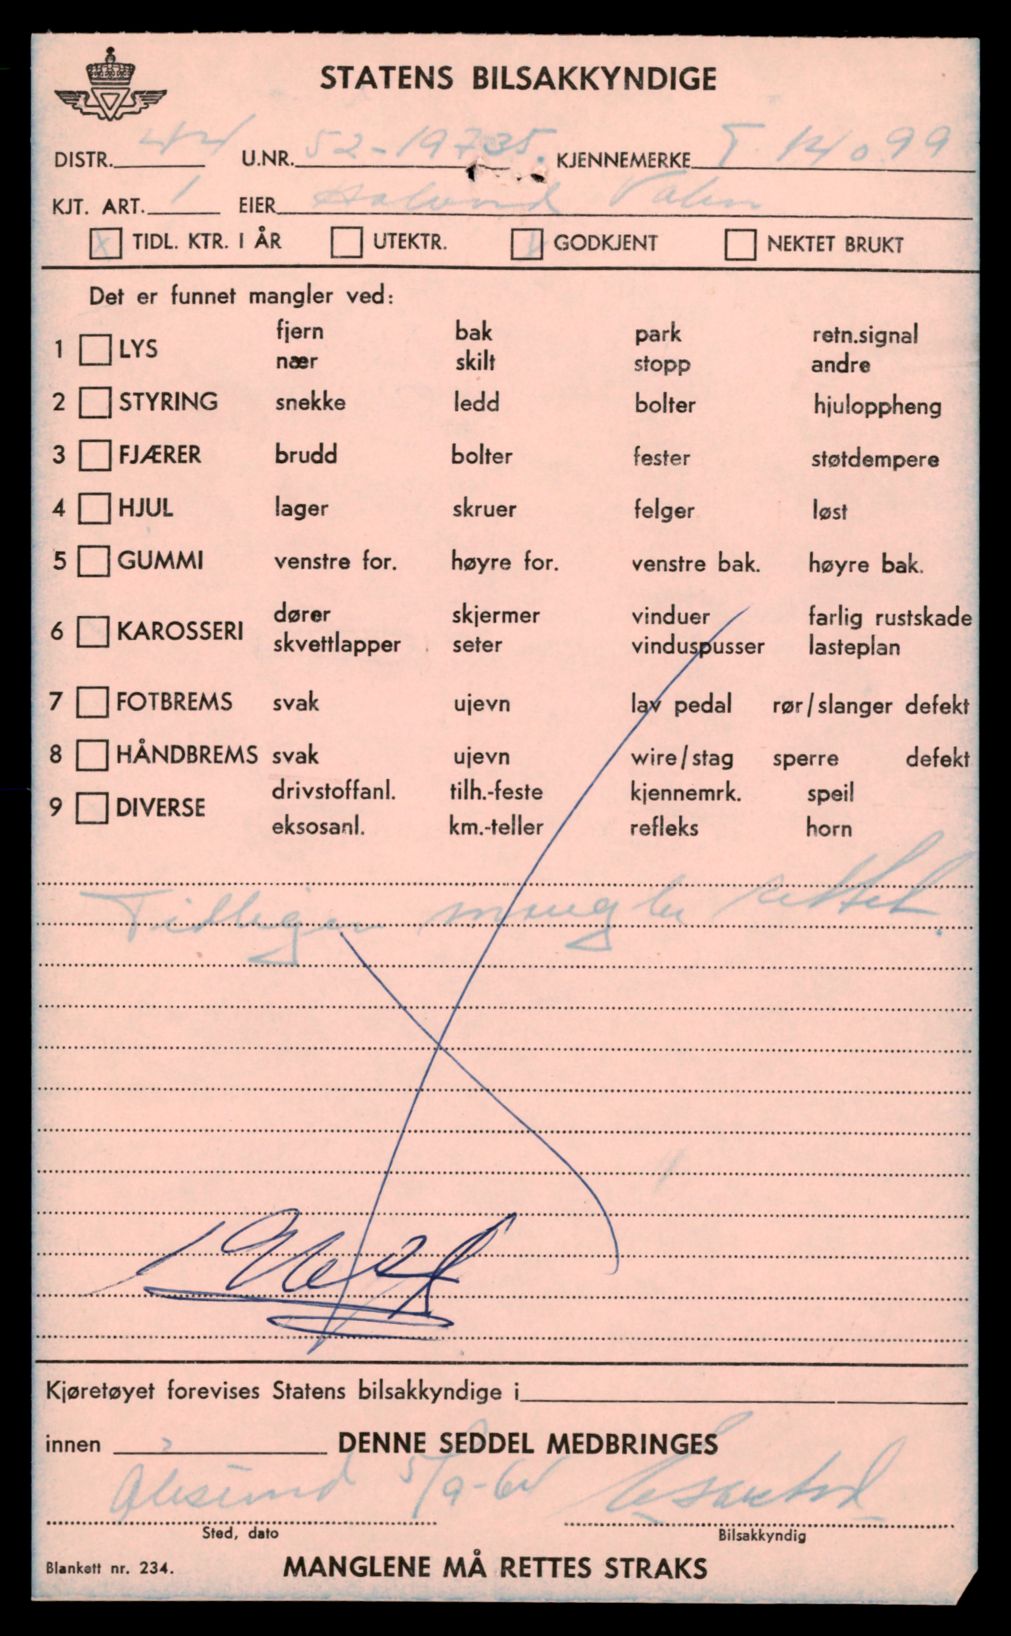 STATENS BILSAKKYNDIGE
DISTR. 44 U.NR. 52-19735. KJENNEMERKE T. 14099
KJT. ART. 1 EIER
x TIDL. KTR. I ÅR UTEKTR. GODKJENT NEKTET BRUKT
Det er funnet mangler ved:
1 LYS fjern bak park retn.signal
nær skilt stopp andre
2 STYRING snekke ledd bolter hjuloppheng
3 FJÆRER brudd bolter fester støtdempere
4 HJUL lager skruer felger løst
5 GUMMI venstre for. høyre for. venstre bak. høyre bak.
6 KAROSSERI dører skjermer vinduer farlig rustskade
skvettlapper seter vinduspusser lasteplan
7 FOTBREMS svak ujevn lav pedal rør/slanger defekt
8 HÅNDBREMS svak ujevn wire/stag sperre defekt
9 DIVERSE drivstoffanl. tilh.-feste kjennemrk. speil
eksosanl. km.-teller refleks horn
Tidligere mangler rettet.
Kjøretøyet forevises Statens bilsakkyndige i
innen DENNE SEDDEL MEDBRINGES
Ålesund 5/9-64
Sted, dato Bilsakkyndig
Blankett nr. 234. MANGLENE MÅ RETTES STRAKS